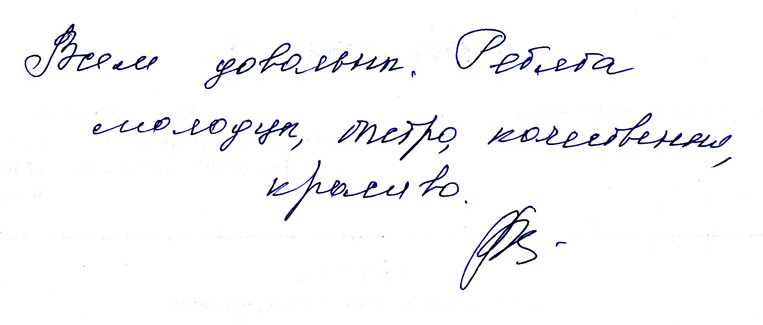 Всем довольны. Ребята
молодцы, быстро, качественно,
красиво.